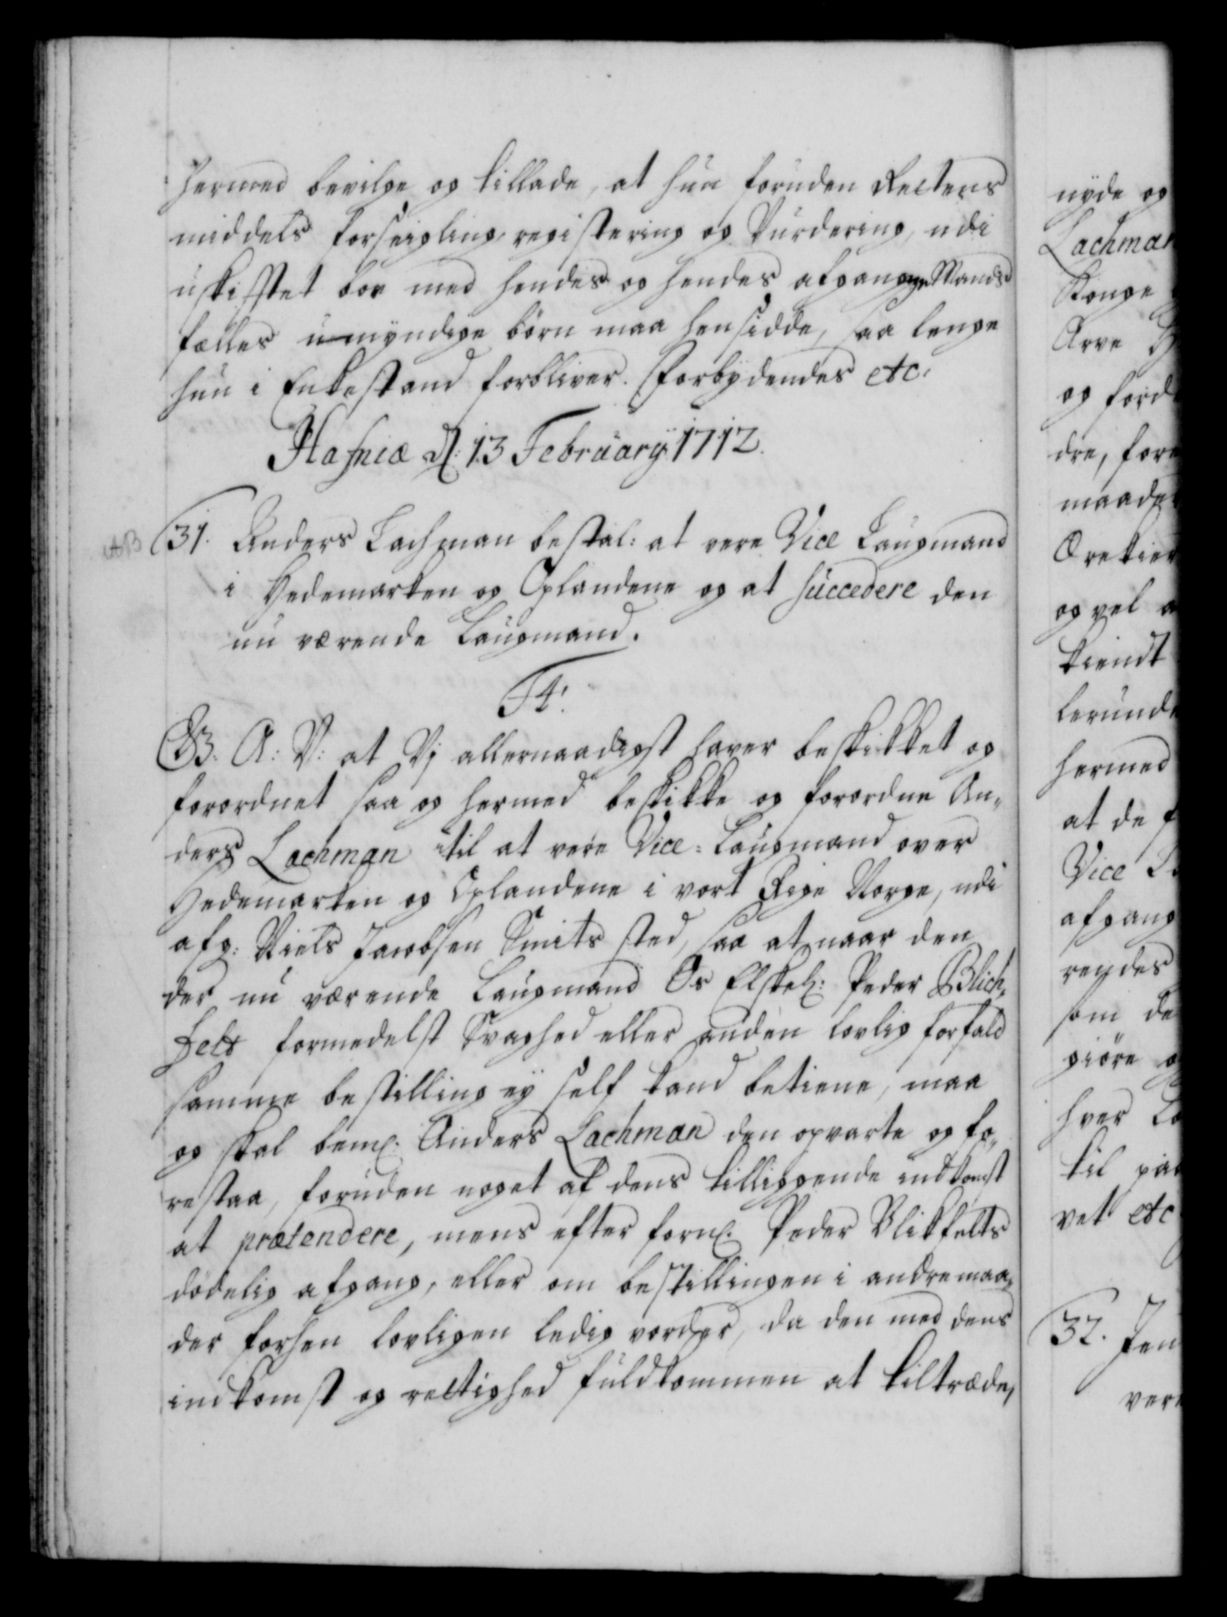 hermed bevilge og tillade, at hun foruden Rettens
middels forseigling, registering og Vurdering, udi
uskifftet boe med hendes og hendes afgangne Mands
fælles umyndige børn maa hensidde, saa lenge
hun i Enkestand forbliver. Forbydendes etc.
Hafniæ d: 13 February 1712.
31. Anders Lachman bestal: at vere Vice Laugmand
i Hedemarken og Oplandene og at succedere den
nu værende Laugmand.
F4.
G. A: V: at Vj allernaadigst hafver beskikket og
forordnet saa og hermed beskikke og forordne An-
ders Lachman til at vere Vice-Laugmand over
Hedemarken og Oplandene i vort Rige Norge, udi
afg: Niels Jacobsen Smits sted, saa at naar den
der nu værende Laugmand Os Elskel: Peder Blich-
feldt formedelst Svaghed eller anden lovlig forfald
samme bestilling ey self kand betiene, maa
og skal bem: Anders Lachman den opvarte og fo-
restaa, foruden noget af dens tilliggende indkomst
at prætendere, mens efter forn: Peder Blikfelts
dødelig afgang, eller om bestillingen i andre maa-
der forhen lovligen ledig vorder, da den med dens
indkomst og rettighed fuldkommen at tiltræde,
nyde og
Lachman
Konge
Arve
og ford
dre, for
maade
Ærekier
og vel
kiendt
lerunde
hermed
at de
Vice
afgang
rendes
som de
giøre
hver
til
vet etc
32. Jen
vere